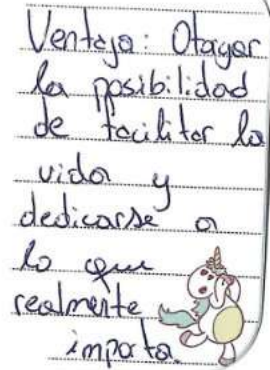 Ventaja: Otagar
la posibilidad
de facilitar la
vida y
dedicarse a
lo que
realmente
importa.